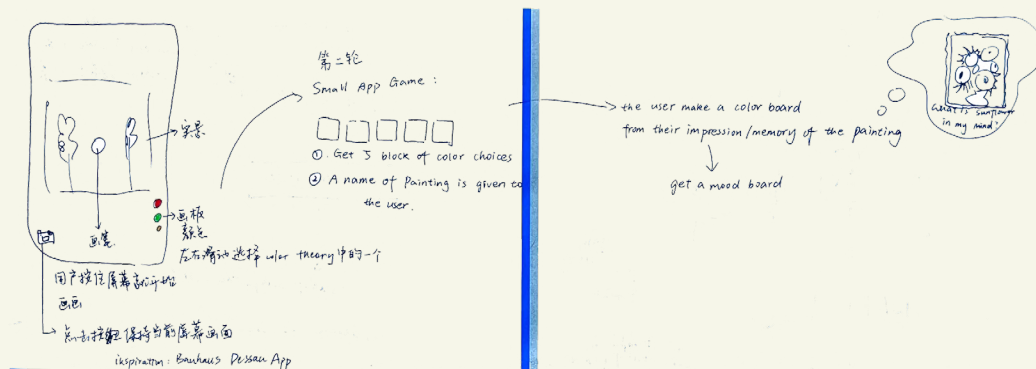 实景
画板
颜色
画笔
左右滑动选择 color theory 中的一个
用户按住屏幕就开始
画画
点击按钮保持当前屏幕画面
inspiration: Bauhaus Dessau App
第二轮
Small App Game:
① Get 5 block of color choices
② A name of Painting is given to
the user.
the user make a color board
from their impression/memory of the painting
get a mood board
what is sunflower
in my mind?